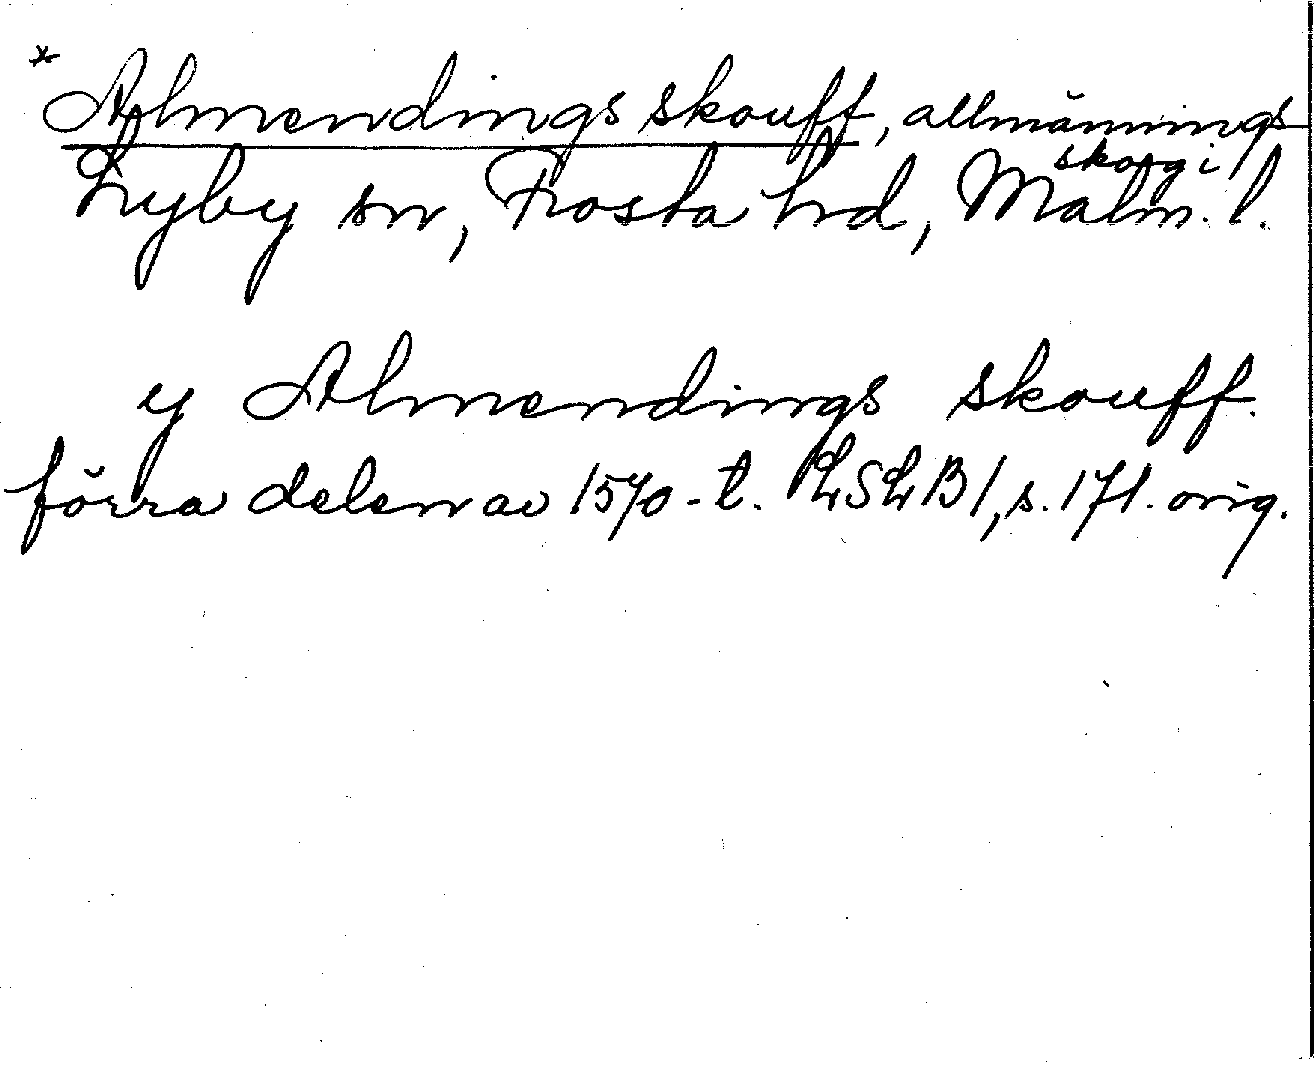 * Almendings skouff, allmännings-
skog i
Lyby sn, Frosta hd, Malm. l.
y Almendings skouff.
förra delen av 1570-t. LSLB1, s. 171. orig.